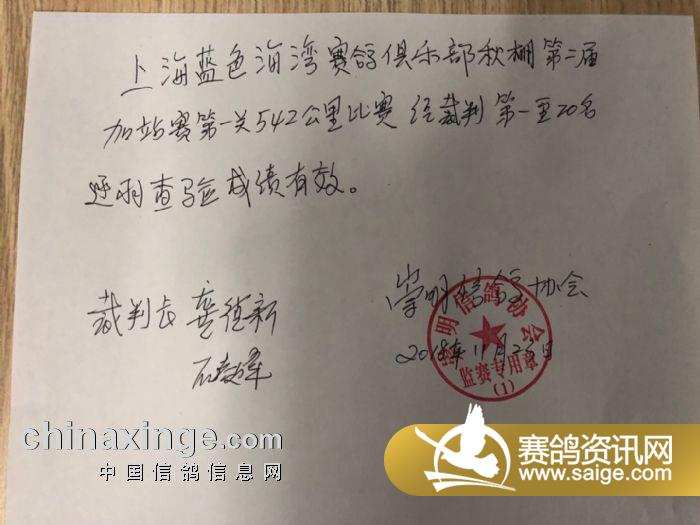 上海蓝色海湾赛鸽俱乐部秋棚第二届
加站赛第一关542公里比赛 经裁判第一至20名
逐羽查验成绩有效。
裁判长 龚德新
崇明信鸽协会
2018年11月23日
崇明信鸽协会
监赛专用章
(1)
chinaxinge.com
中国信鸽信息网
赛鸽资讯网
www.saige.com